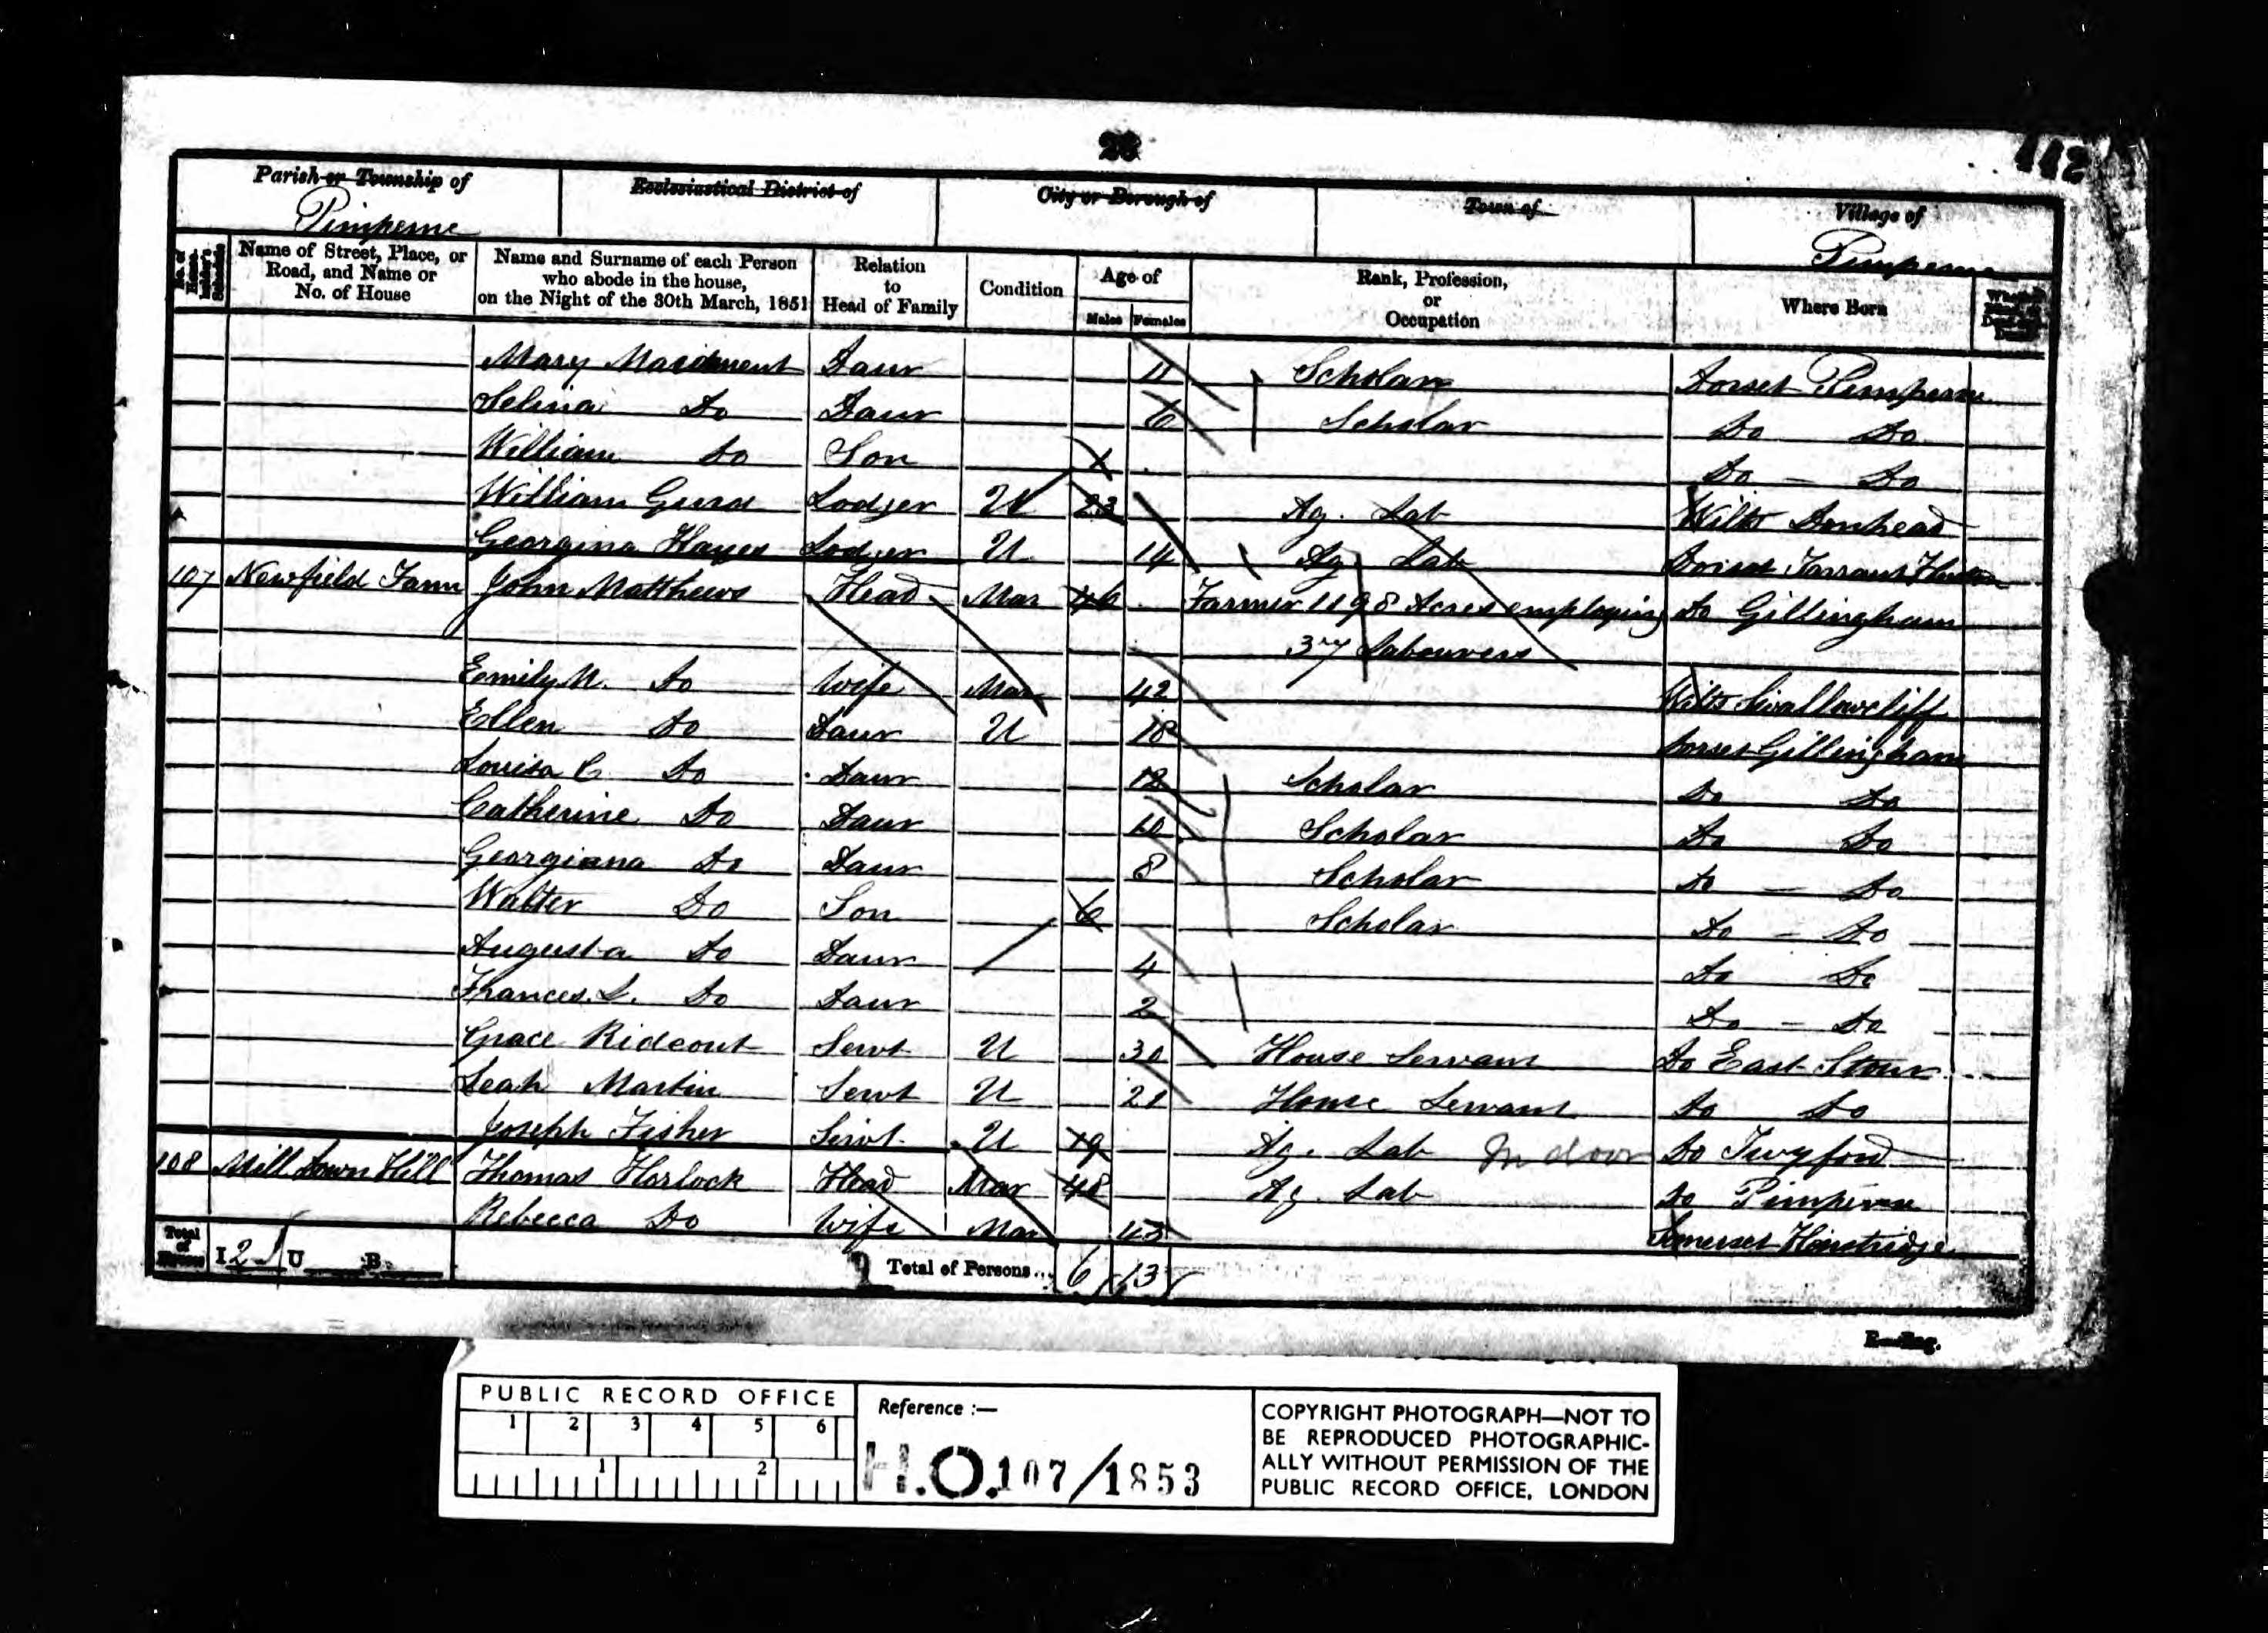 28
112
Parish or Township of Ecclesiastical District of City or Borough of Town of Village of
Pimperne Pimperne
No. of House-holder's Schedule Name of Street, Place, or Road, and Name or No. of House Name and Surname of each Person who abode in the house, on the Night of the 30th March, 1851 Relation to Head of Family Condition Age of Males Females Rank, Profession, or Occupation Where Born
Mary Maidment Daur 11 Scholar Dorset Pimperne
Selina Do Daur 6 Scholar Do Do
William Do Son Do Do
William Gurd Lodger U 23 Ag. Lab Wilts Donhead
Georgina Hayes Lodger U 14 Ag Lab Dorset Tarrant
107 Newfield Farm John Matthews Head Mar 46 Farmer 1198 Acres employing Do Gillingham
37 Labourers
Emily M. Do Wife Mar 42 Wilts Swallowcliff
Ellen Do Daur U 18 Dorset Gillingham
Louisa C. Do Daur 12 Scholar Do Do
Catherine Do Daur 10 Scholar Do Do
Georgiana Do Daur 8 Scholar Do Do
Walter Do Son 6 Scholar Do Do
Augusta Do Daur 4 Do Do
Frances. L. Do Daur 2 Do Do
Grace Rideout Servt U 30 House Servant Do East Stour
Leah Martin Servt U 21 House Servant Do Do
Joseph Fisher Servt U 19 Ag. Lab In door Do Twyford
108 Mill Down Hill Thomas Horlock Head Mar 48 Ag. Lab Do Pimperne
Rebecca Do Wife Mar 43 Somerset Henstridge
Total of Houses I 2 U B Total of Persons... 6 13
PUBLIC RECORD OFFICE
1 2 3 4 5 6
1 2
Reference :—
H.O. 107/1853
COPYRIGHT PHOTOGRAPH—NOT TO
BE REPRODUCED PHOTOGRAPHIC-
ALLY WITHOUT PERMISSION OF THE
PUBLIC RECORD OFFICE, LONDON